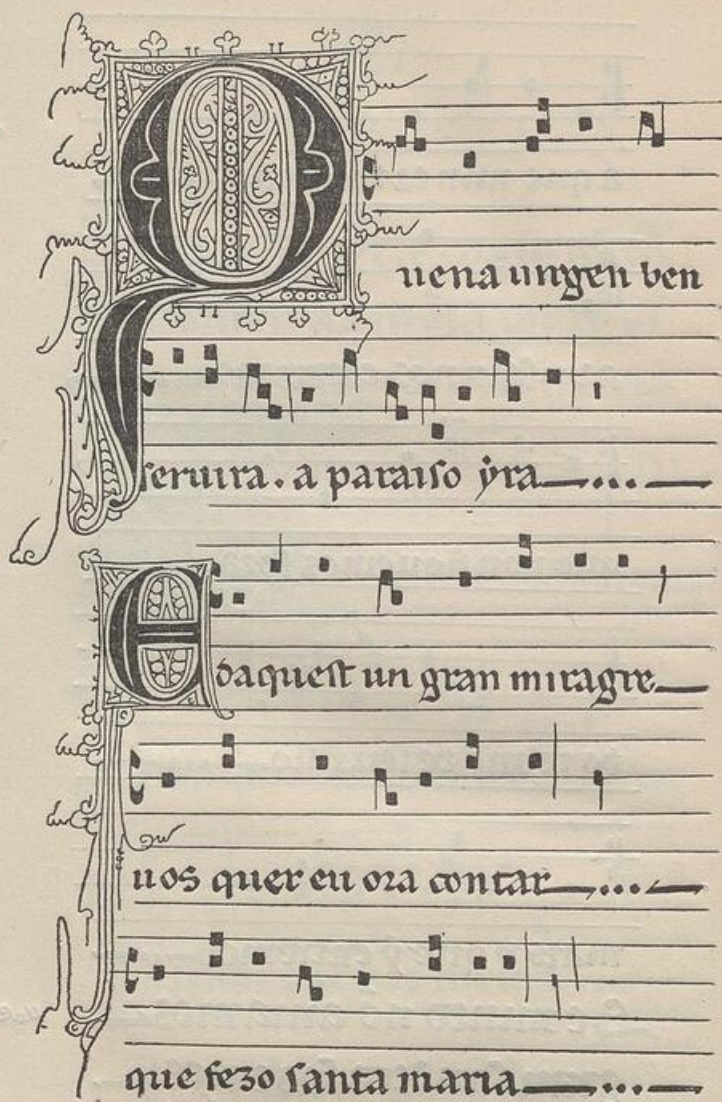 Quena uirgen ben
seruira. a paraiso ẏra
E daquest un gran miragre
uos quer eu ora contar
que fezo santa maria